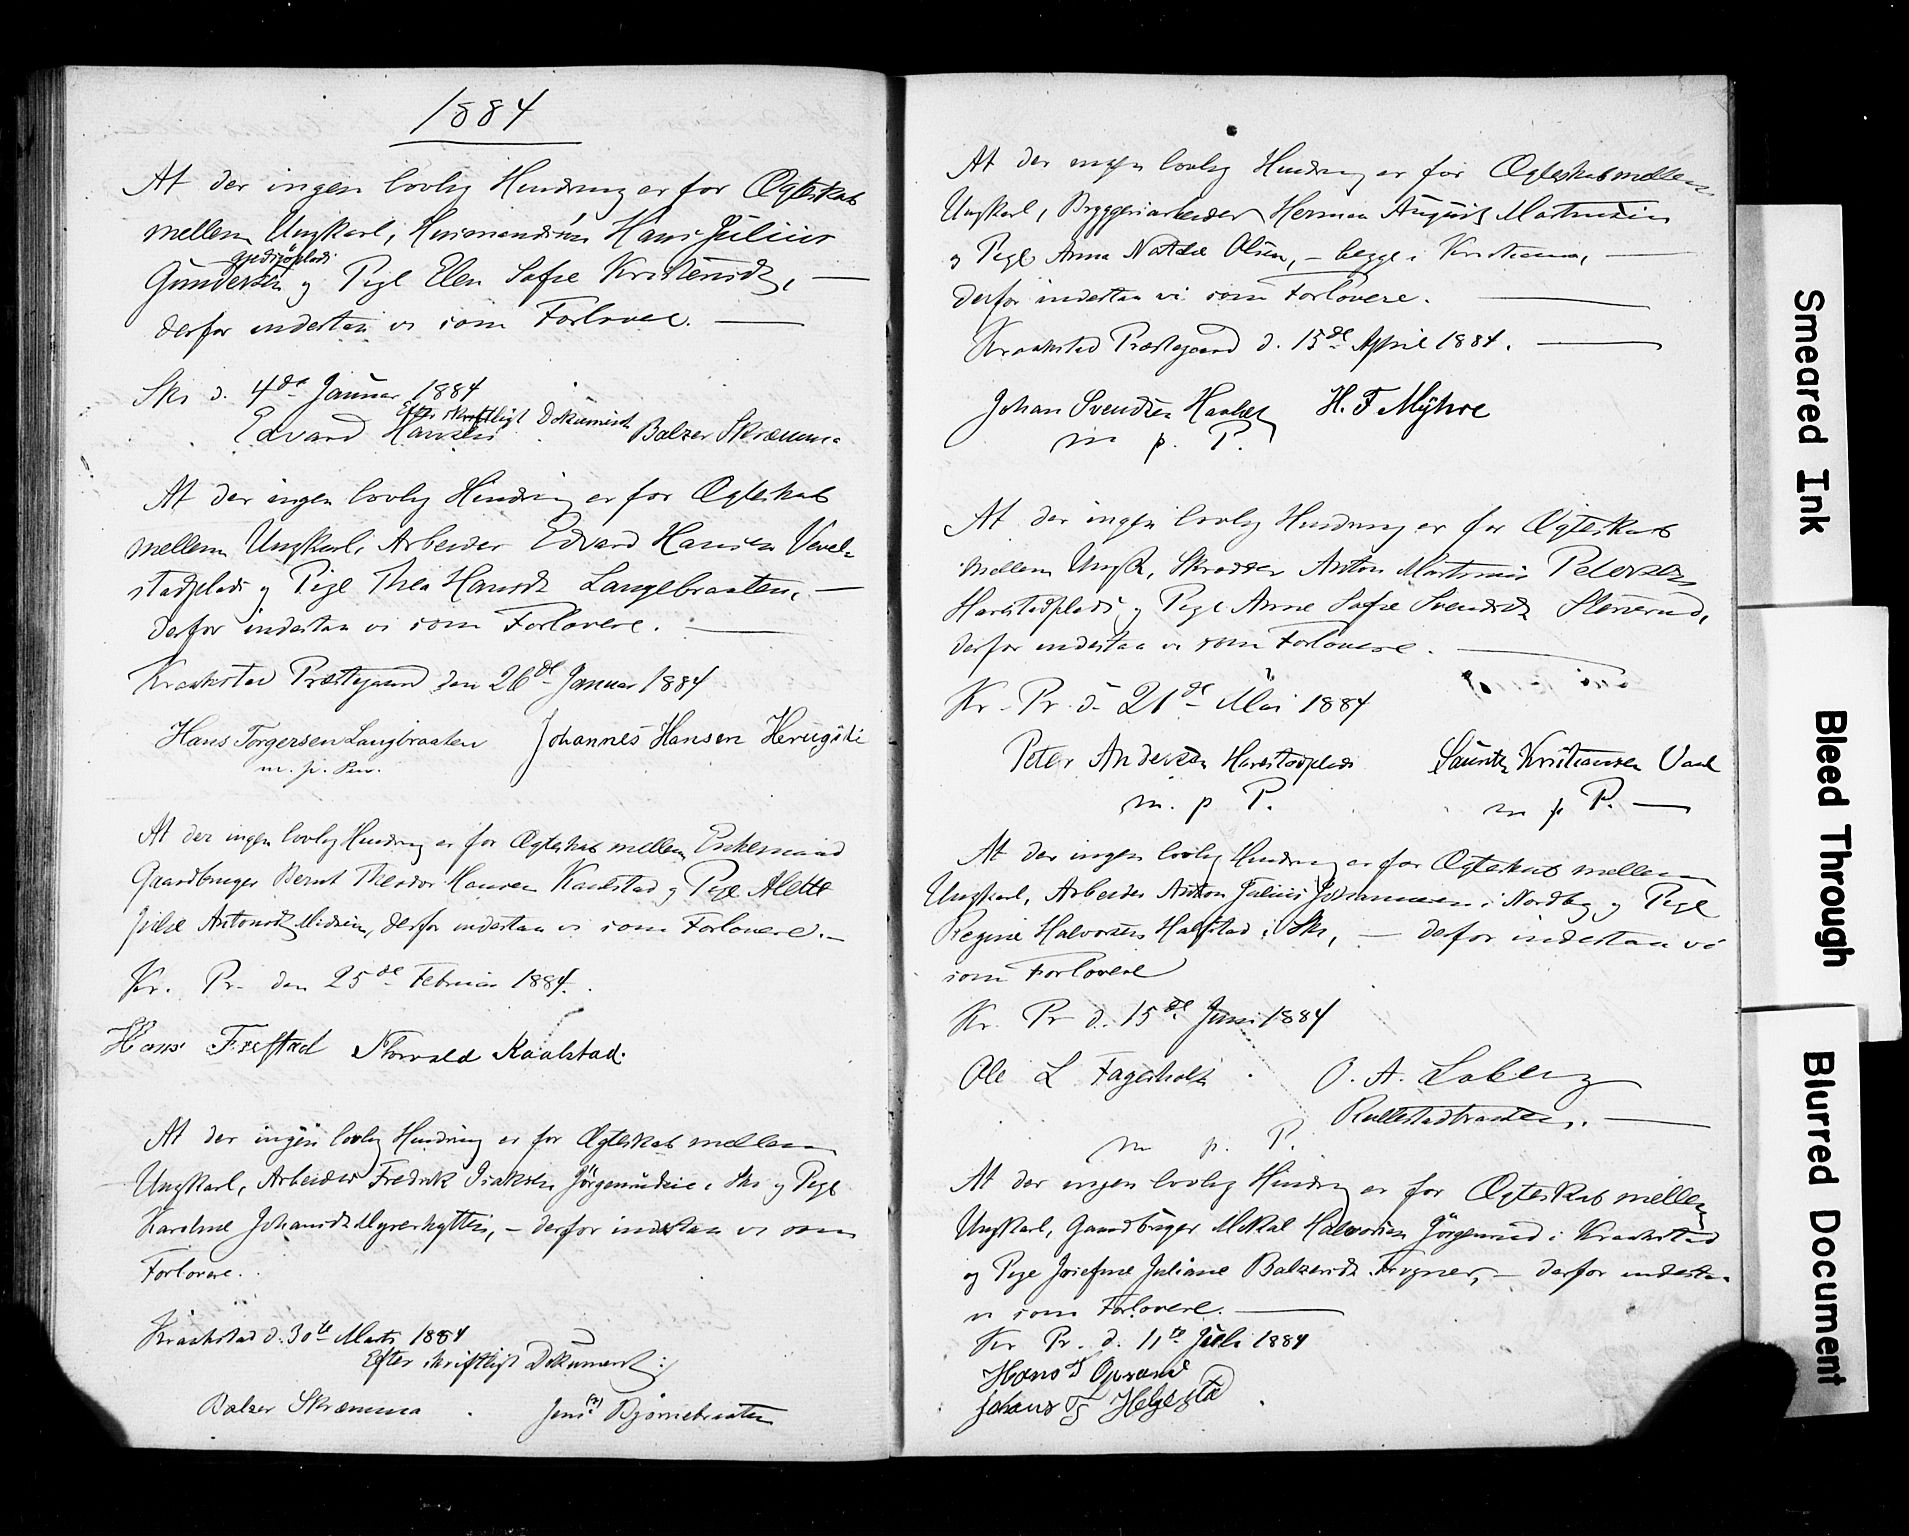 1884
At der ingen lovlig Hindring er for Ægteskab
mellem Ungkarl, Husmandssøn Hans Julius
Gjedsjøplads
Gundersen og Pige Elen Sofie Kristensdt,
derfor indestaa vi som Forlovere.
Ski d. 4de Januar 1884
Efter skriftligt Dokument
Edvard Hansen Balzer Skræmma
At der ingen lovlig Hindring er for Ægteskab
mellem Ungkarl, Arbeider Edvard Hansen Vevel-
stadplads og Pige Thea Hansdt Langebraaten,
derfor indestaa vi som Forlovere.
Kraakstad Præstegaard den 26de Januar 1884
Hans Torgersen Langbraaten Johannes Hansen
m. p. Pen.
At der ingen lovlig Hindring er for Ægteskab mellem Enkemand
Gaardbruger Bernt Theodor Hansen Kaalstad og Pige Alette
Antonsdt Midsem, derfor indestaa vi som Forlovere.
Kr. Pr. den 25de Februar 1884.
Hans Frestad Thorvald Kaalstad.
At der ingen lovlig Hindring er for Ægteskab mellem
Ungkarl, Arbeider Fredrik Isaksen Jørgenrudeie i Ski og Pige
Karoline Johansdt Myrerhytten, - derfor indestaa vi som
Forlovere.
Kraakstad d. 30te Marts 1884
Efter skriftligt Dokument:
Balzer Skræmma Jens (?) Bjørnebraaten
At der ingen lovlig Hindring er for Ægteskab mellem
Ungkarl, Bryggeriarbeider Herman August Martinsen
og Pige Anna Natalie Olsen, - begge i Kristiania,
derfor indestaa vi som Forlovere.
Kraakstad Præstegaard d. 15de April 1884.
Johan Svendsen H. F Myhre
m p. P.
At der ingen lovlig Hindring er for Ægteskab
mellem Ungk, Skrædder Anton Martinius Petersen
Harestadplads og Pige Anne Sofie Svendsdt Stenerud,
derfor indestaa vi som Forlovere.
Kr. Pr. d. 21de Mai 1884
Peter Andersen Harestadplads Kristiansen Vaal
m. p P. m p P.
At der ingen lovlig Hindring er for Ægteskab mellem
Ungkarl, Arbeider Anton Julius Johannesen i Nordby og Pige
Regine Halvorsen Halstad i Ski, - derfor indestaa vi
som Forlovere
Kr. Pr d. 15de Juni 1884
Ole L Fagerholt O. A. Loberg
Rullestadbraaten.
m p. P.
At der ingen lovlig Hindring er for Ægteskab mellem
Ungkarl, Gaardbruger Mikal Halvorsen Jørgenrud i Kraakstad
og Pige Josefine Juliane Balzersdt Frogner, - derfor indestaa
vi som Forlovere.
Kr Pr. d. 11te Juli 1884
Hans
Johans Helgestad
Smeared Ink
Bleed Through
Blurred Document